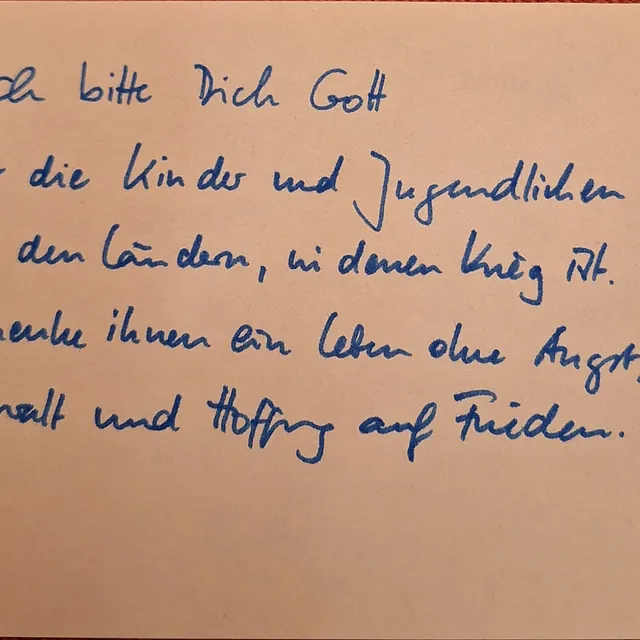 ch bitte Dich Gott
r die Kinder und Jugendlichen
den Ländern, in denen Krieg ist.
henke ihnen ein Leben ohne Angst,
walt und Hoffnung auf Frieden.